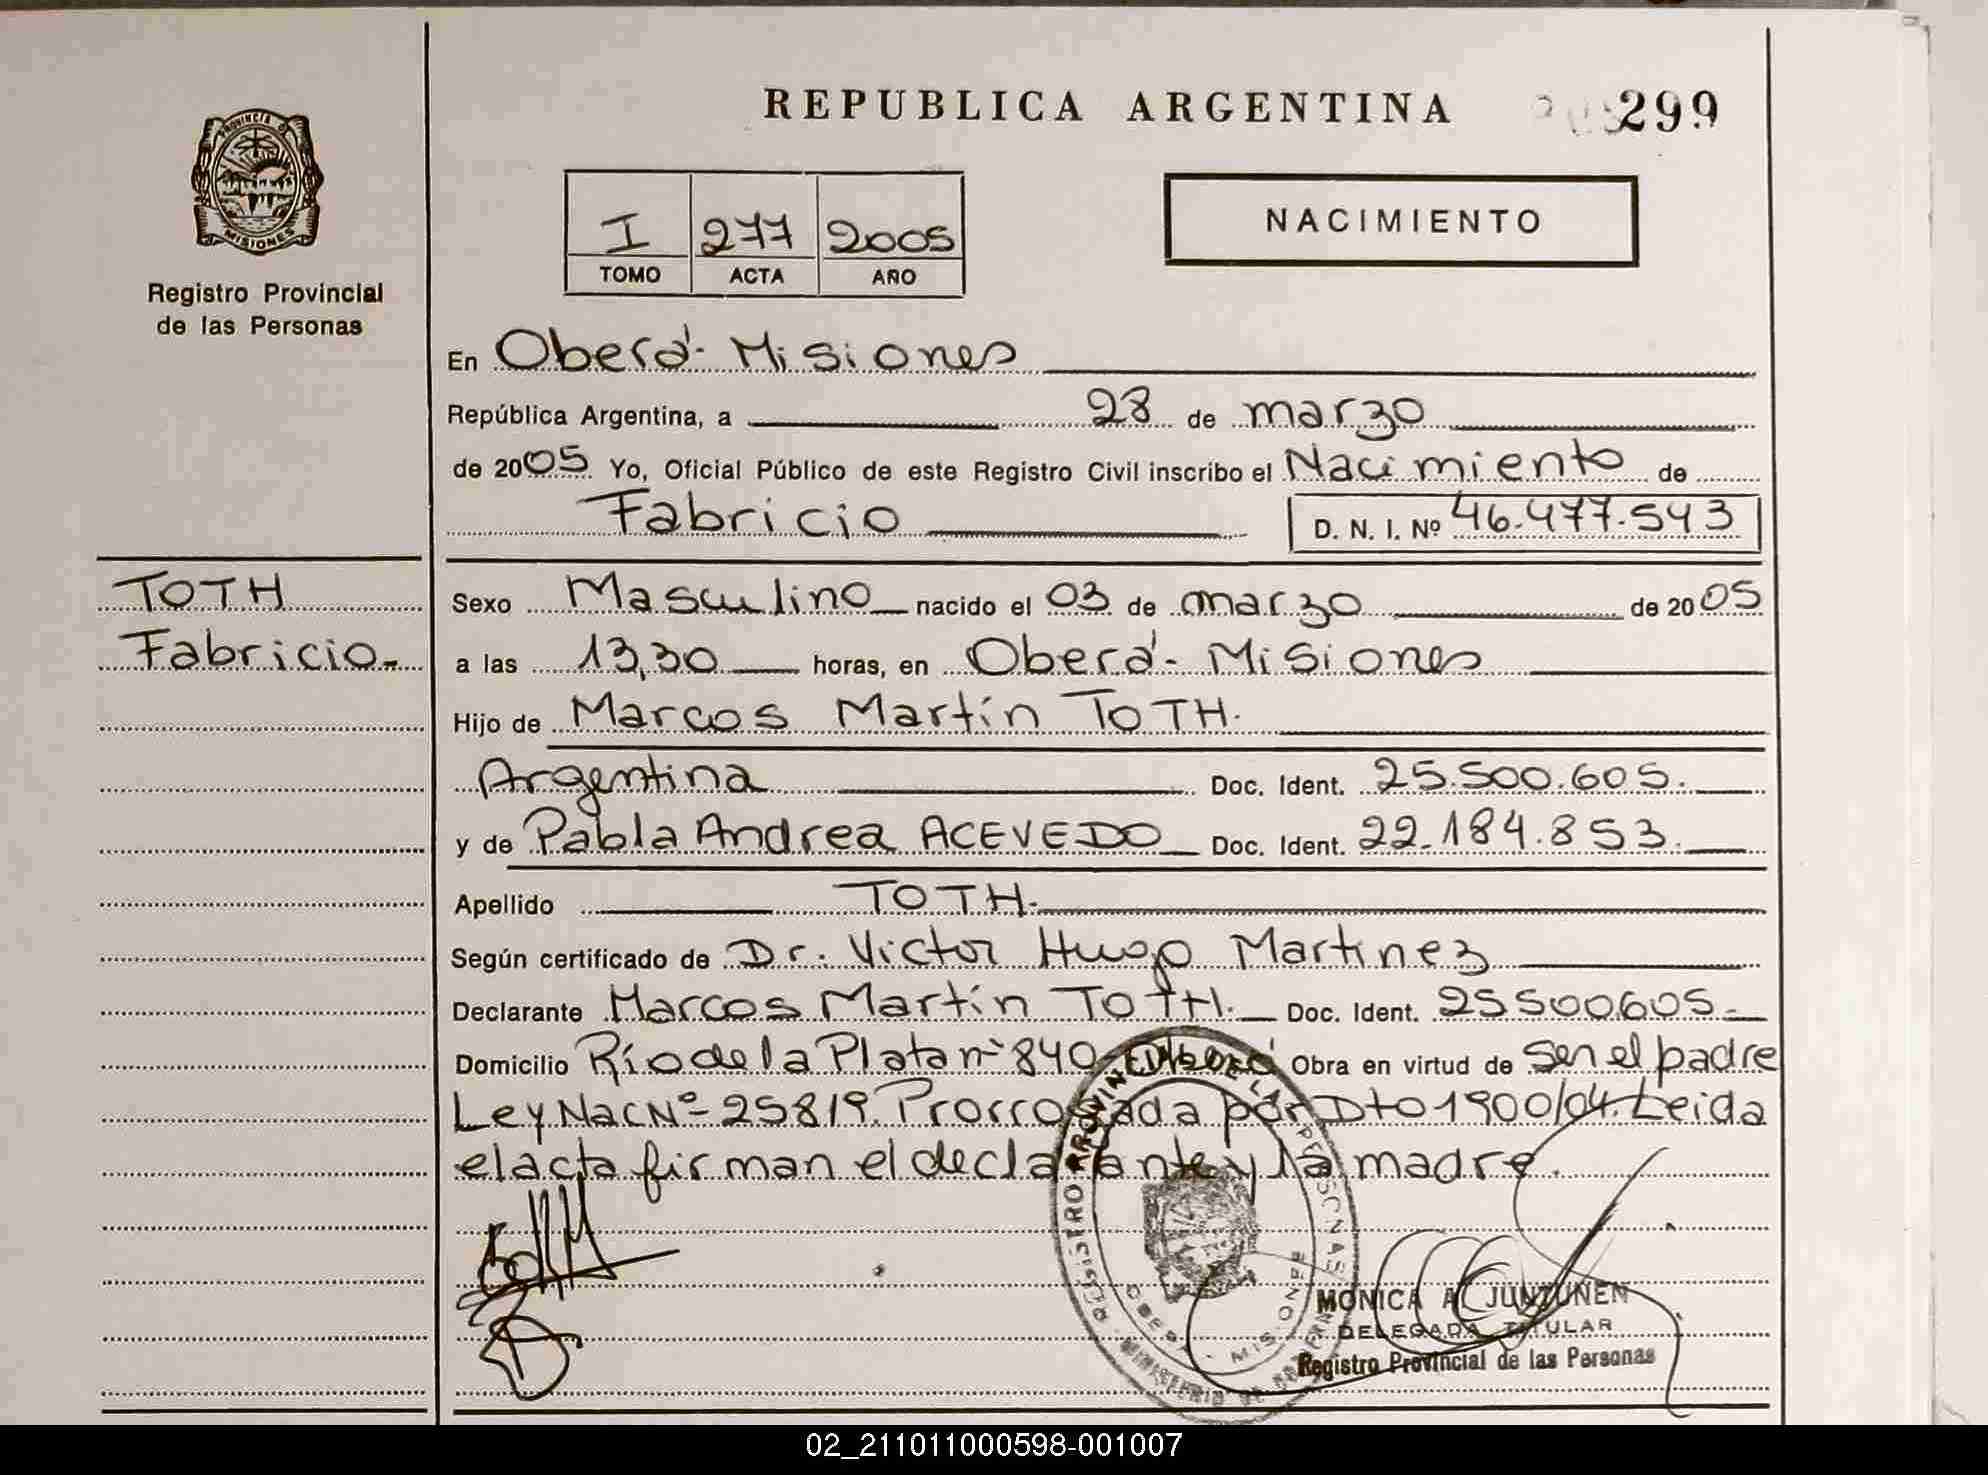 REPUBLICA ARGENTINA
299
PROVINCIA D
MISIONES
Registro Provincial
de las Personas
I 277 2005
TOMO ACTA AÑO
NACIMIENTO
En Oberá - Misiones
República Argentina, a 28 de marzo
de 2005 Yo, Oficial Público de este Registro Civil inscribo el Nacimiento de
Fabricio D. N. I. Nº 46.477.543
TOTH
Fabricio.-
Sexo Masculino nacido el 03 de marzo de 2005
a las 13,30 horas, en Oberá - Misiones
Hijo de Marcos Martín TOTH.
Argentina Doc. Ident. 25.500.605.
y de Pabla Andrea ACEVEDO Doc. Ident. 22.184.853.
Apellido TOTH.
Según certificado de Dr. Victor Hugo Martinez
Declarante Marcos Martín TOTH. Doc. Ident. 25500605.
Domicilio Río de la Plata nº 840 - Oberá Obra en virtud de Ser el padre
Ley Nac Nº 25819. Prorrogada por Dto 1900/04. Leida
el acta firman el declarante y la madre.
REGISTRO PROVINCIAL DE LAS PERSONAS
OBERA - MISIONES
MINISTERIO DE GOBIERNO
MONICA A. JUNTUNEN
DELEGADA TITULAR
Registro Provincial de las Personas
02_211011000598-001007